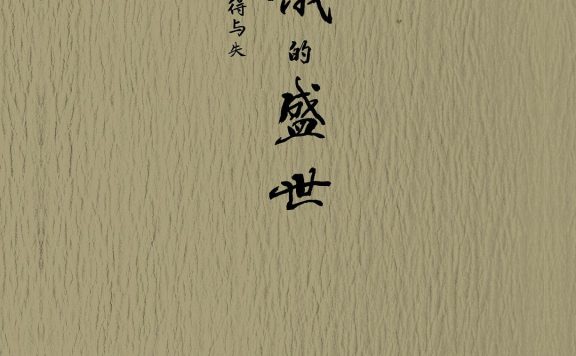 的盛世
得与失